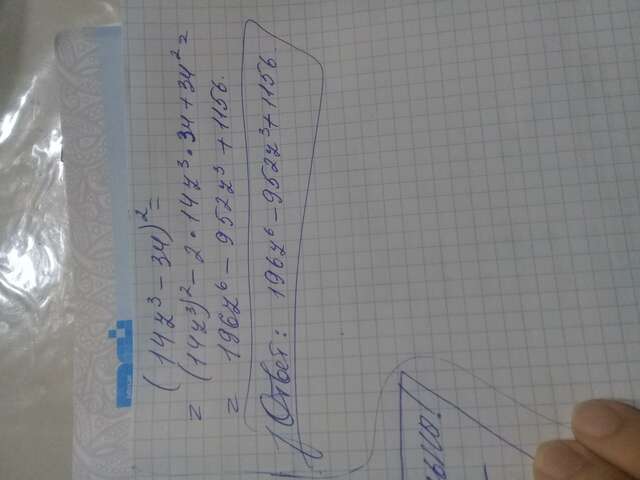 (14z³ - 34)² =
= (14z³)² - 2 • 14z³ • 34 + 34² =
= 196z⁶ - 952z³ + 1156.
Ответ: 196z⁶ - 952z³ + 1156.